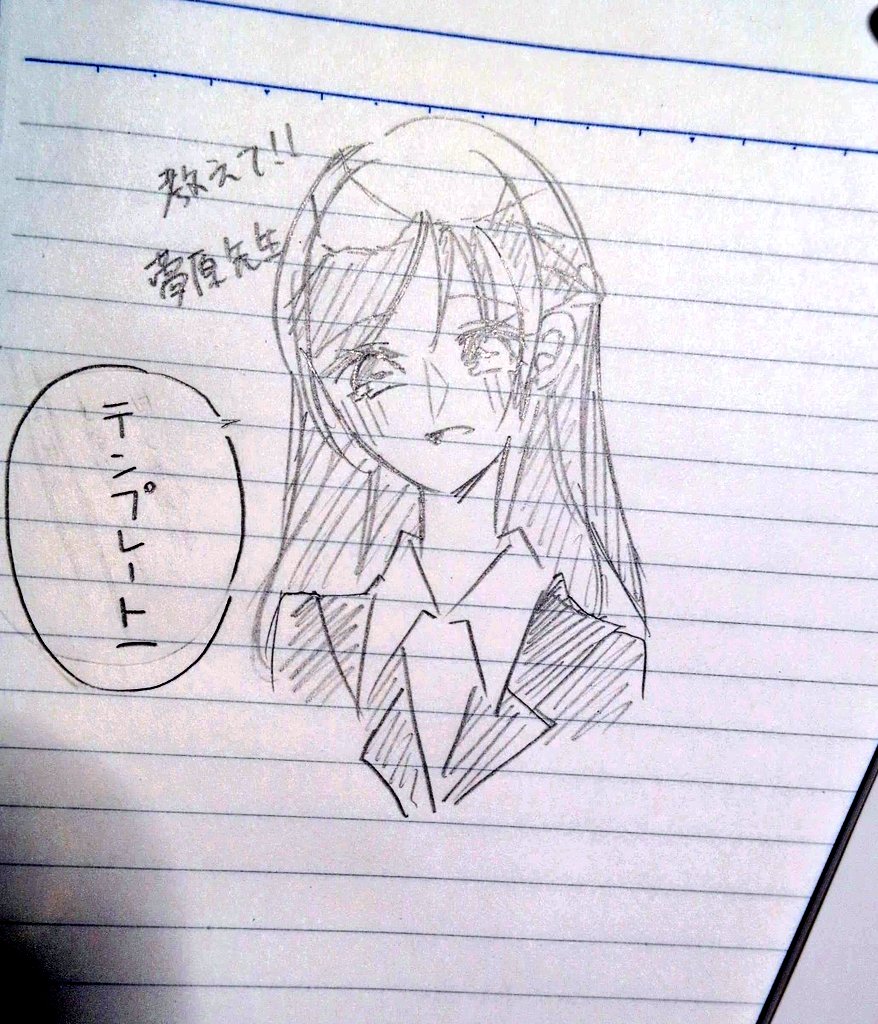 教えて!!
菅原先生
テンプレートー